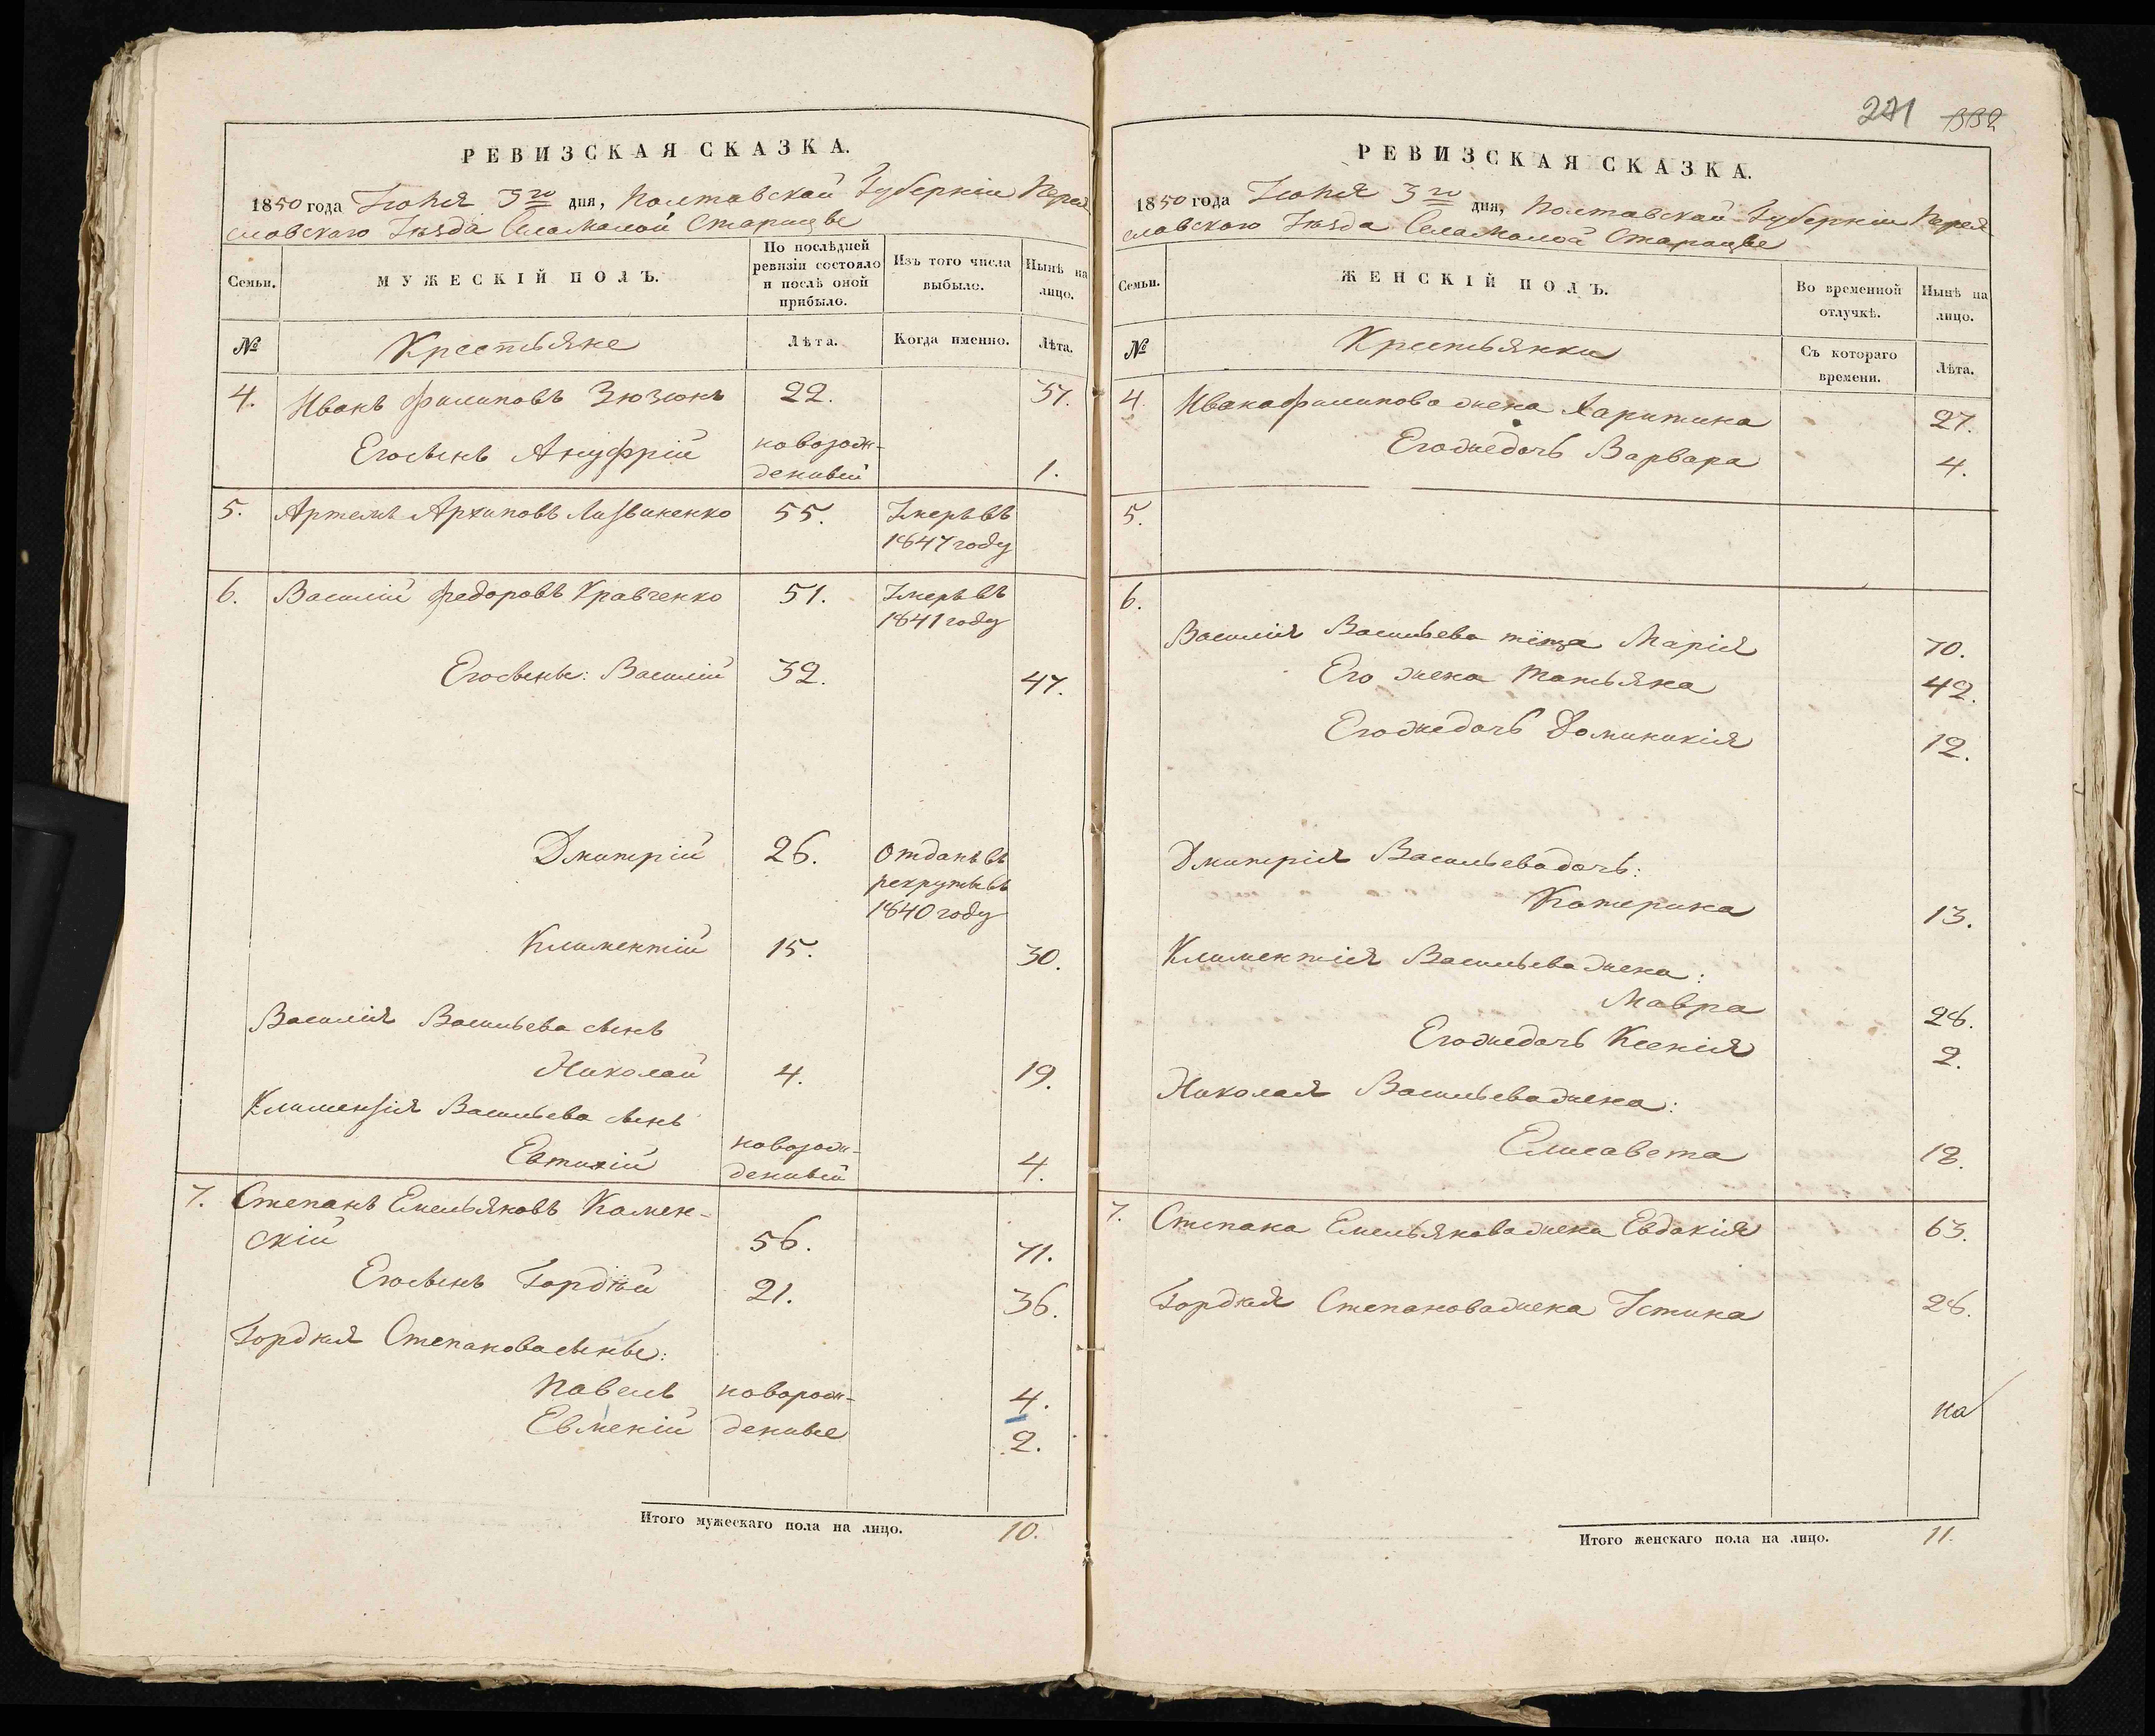 РЕВИЗСКАЯ СКАЗКА.
1850 года Іюня 3го дня, Полтавской Губерніи Перея
славскаго Уѣзда Села Малой Старицы
Семьи.
МУЖЕСКІЙ ПОЛЪ.
По послѣдней ревизіи состояло и послѣ оной прибыло.
Изъ того числа выбыло.
Нынѣ на лицо.
№
Крестьяне
Лѣта.
Когда именно.
Лѣта.
4. Иванъ Филиповъ Зюзюнъ 22. 37.
Его сынъ Ануфрій новорож-
денный 1.
5. Артемъ Архиповъ Литвиненко 55. Умеръ въ
1847 году
6. Василій Федоровъ Кравченко 51. Умеръ въ
1841 году
Его сыны: Василій 32. 47.
Дмитрій 26. Отданъ въ
рекруты въ
1840 году
Климентій 15. 30.
Василія Васильева сынъ
Николай 4. 19.
Климентія Васильева сынъ
Евтихій новорож-
денный 4.
7. Степанъ Емельяновъ Камен-
скій 56. 71.
Его сынъ Гордѣй 21. 36.
Гордѣя Степанова сыны:
Павелъ новорож- 4.
Евменій денные 2.
Итого мужескаго пола на лицо. 10.
271 332
РЕВИЗСКАЯ СКАЗКА.
1850 года Іюня 3го дня, Полтавской Губерніи Перея
славскаго Уѣзда Села Малой Старицы
Семьи.
ЖЕНСКІЙ ПОЛЪ.
Во временной отлучкѣ.
Нынѣ на лицо.
№
Крестьянки
Съ котораго времени.
Лѣта.
4 Ивана Филипова жена Харитина 27.
Его же дочь Варвара 4.
5.
6.
Василія Васильева тёща Марія 70.
Его жена Татьяна 42.
Его же дочь Доминикія 12.
Дмитрія Васильева дочь:
Катерина 13.
Климентія Васильева жена:
Мавра 28.
Его же дочь Ксенія 2.
Николая Васильева жена:
Елисавета 18.
7. Степана Емельянова жена Евдокія 63.
Гордѣя Степанова жена Устина 28.
на
Итого женскаго пола на лицо. 11.